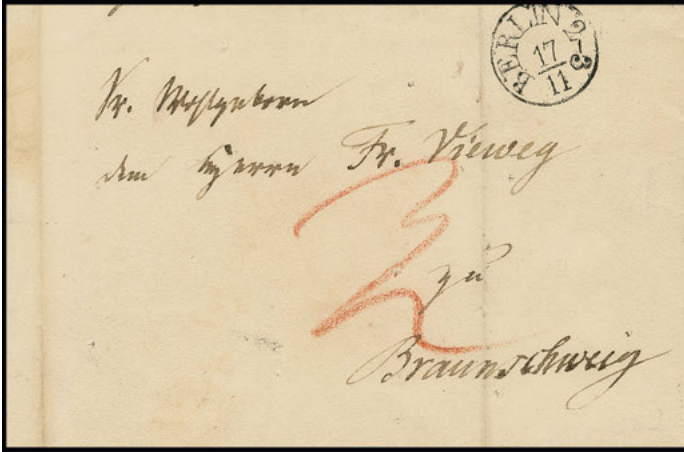 BERLIN 2-3
17
11
Sr. Wohlgeborn
dem Herrn Fr. Vieweg
zu
Braunschweig